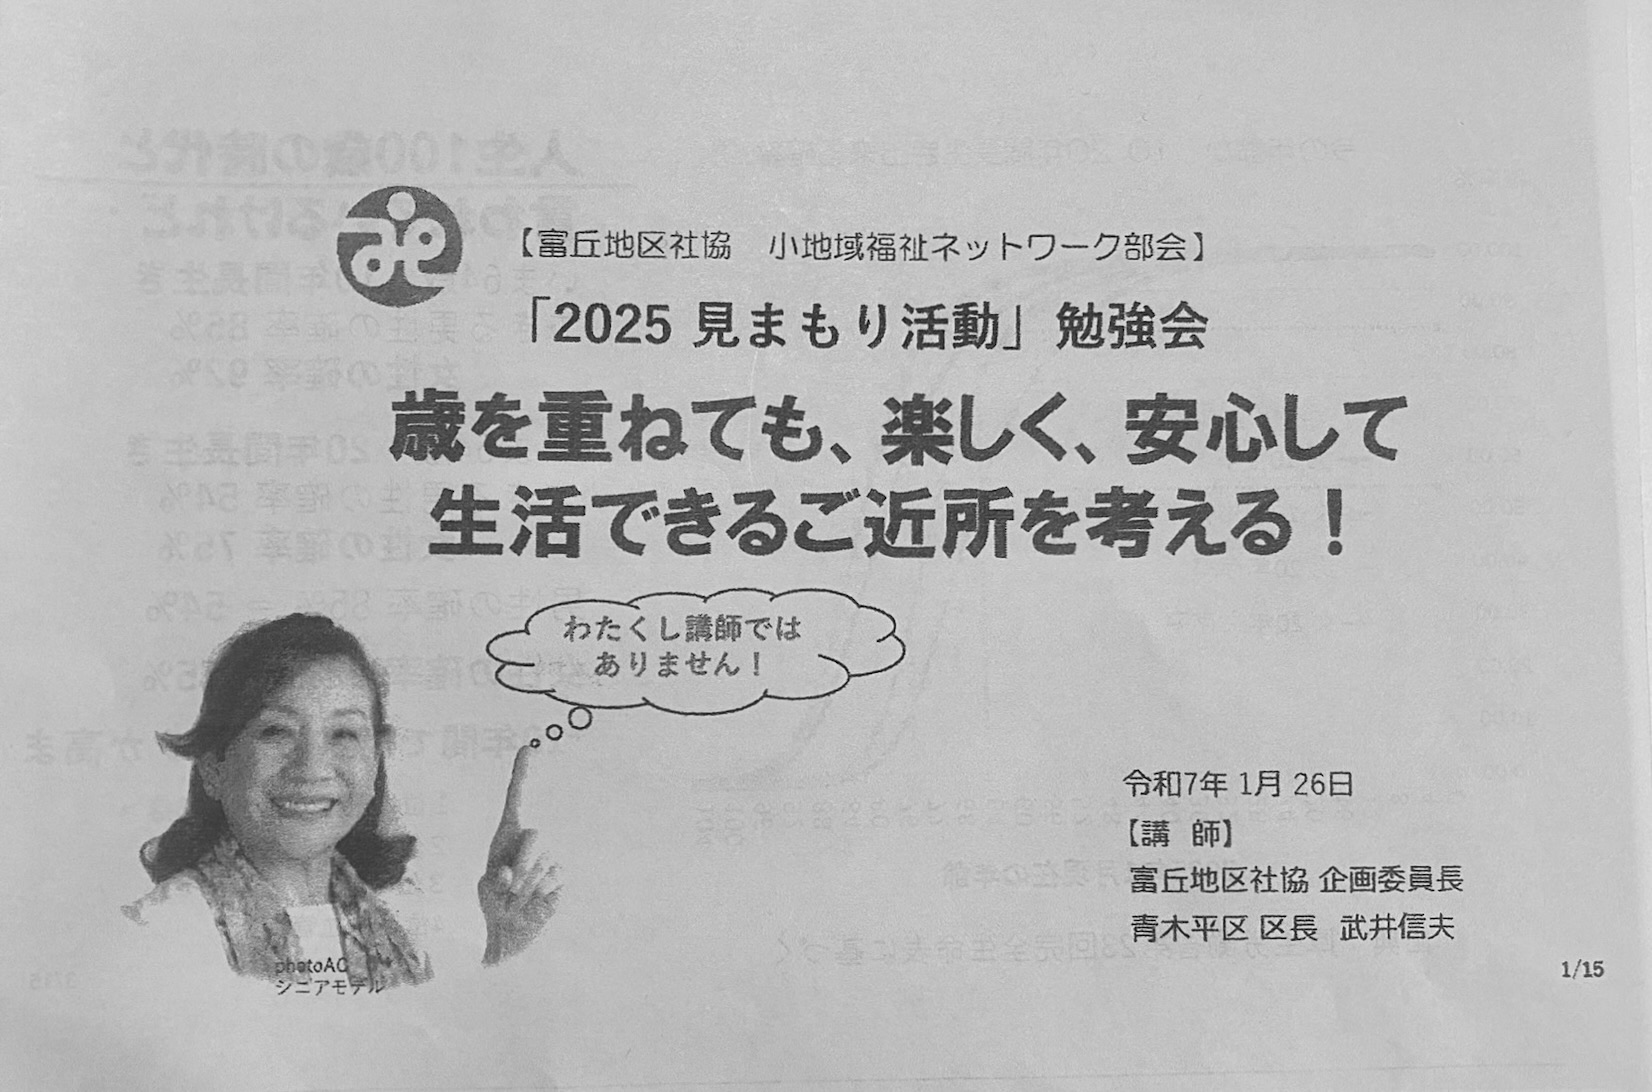 【富丘地区社協　小地域福祉ネットワーク部会】
「2025 見まもり活動」勉強会
歳を重ねても、楽しく、安心して
生活できるご近所を考える！
わたくし講師では
ありません！
令和7年 1月 26日
【講　師】
富丘地区社協 企画委員長
青木平区 区長　武井信夫
photoAC
シニアモデル
1/15